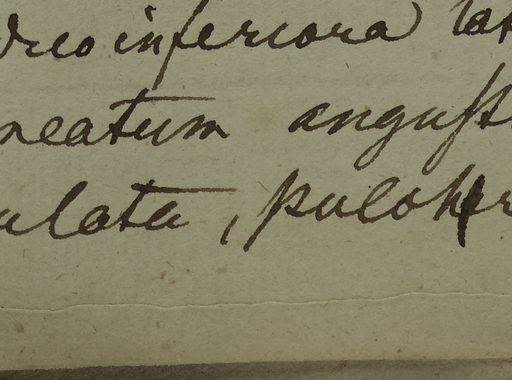 dreo inferiora lat
neatum angust
ulata, pulcher